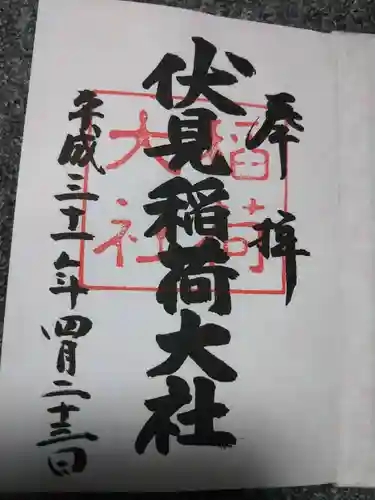 奉拝
伏見稲荷大社
平成三十一年四月二十三日
稲荷
大社